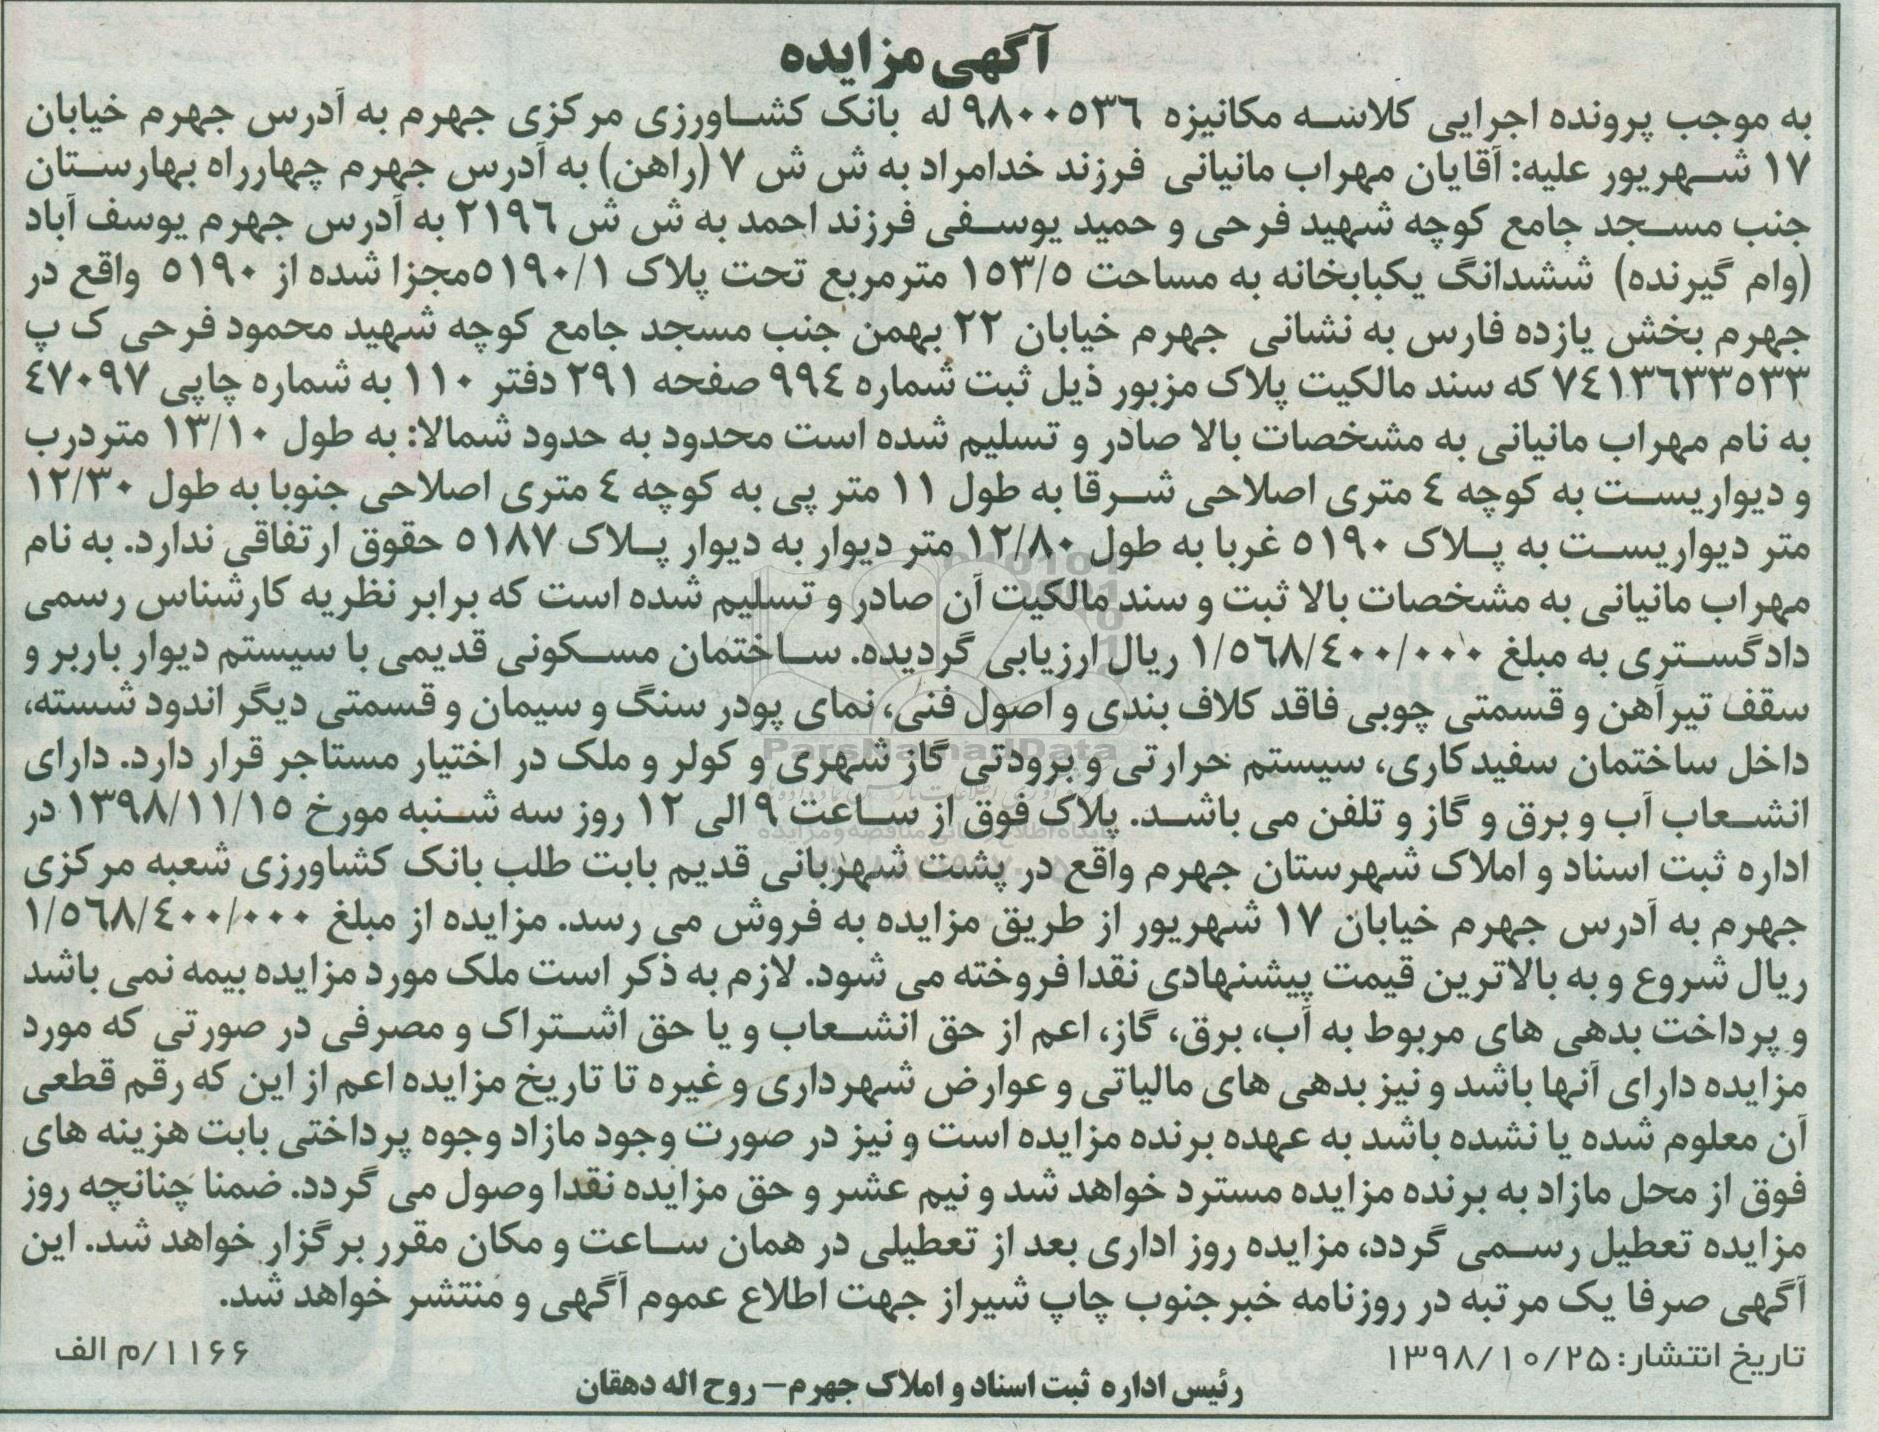 آگهی مزایده
به موجب پرونده اجرایی کلاسه مکانیزه ۹۸۰۰۵۳۶ له بانک کشاورزی مرکزی جهرم به آدرس جهرم خیابان
۱۷ شهریور علیه: آقایان مهراب مانیانی فرزند خدامراد به ش ش ۷ (راهن) به آدرس جهرم چهارراه بهارستان
جنب مسجد جامع کوچه شهید فرحی و حمید یوسفی فرزند احمد به ش ش ۲۱۹۶ به آدرس جهرم یوسف آباد
(وام گیرنده) ششدانگ یکبابخانه به مساحت ۱۵۳/۵ مترمربع تحت پلاک ۵۱۹۰/۱مجزا شده از ۵۱۹۰ واقع در
جهرم بخش یازده فارس به نشانی جهرم خیابان ۲۲ بهمن جنب مسجد جامع کوچه شهید محمود فرحی ک پ
۷۴۱۳۶۳۳۵۳۳ که سند مالکیت پلاک مزبور ذیل ثبت شماره ۹۹۴ صفحه ۲۹۱ دفتر ۱۱۰ به شماره چاپی ۴۷۰۹۷
به نام مهراب مانیانی به مشخصات بالا صادر و تسلیم شده است محدود به حدود شمالا: به طول ۱۳/۱۰ متردرب
و دیواریست به کوچه ۴ متری اصلاحی شرقا به طول ۱۱ متر پی به کوچه ۴ متری اصلاحی جنوبا به طول ۱۲/۳۰
متر دیواریست به پلاک ۵۱۹۰ غربا به طول ۱۲/۸۰ متر دیوار به دیوار پلاک ۵۱۸۷ حقوق ارتفاقی ندارد. به نام
مهراب مانیانی به مشخصات بالا ثبت و سند مالکیت آن صادر و تسلیم شده است که برابر نظریه کارشناس رسمی
دادگستری به مبلغ ۱/۵۶۸/۴۰۰/۰۰۰ ریال ارزیابی گردیده. ساختمان مسکونی قدیمی با سیستم دیوار باربر و
سقف تیرآهن و قسمتی چوبی فاقد کلاف بندی و اصول فنی، نمای پودر سنگ و سیمان و قسمتی دیگر اندود شسته،
داخل ساختمان سفیدکاری، سیستم حرارتی و برودتی گاز شهری و کولر و ملک در اختیار مستاجر قرار دارد. دارای
انشعاب آب و برق و گاز و تلفن می باشد. پلاک فوق از ساعت ۹ الی ۱۲ روز سه شنبه مورخ ۱۳۹۸/۱۱/۱۵ در
اداره ثبت اسناد و املاک شهرستان جهرم واقع در پشت شهربانی قدیم بابت طلب بانک کشاورزی شعبه مرکزی
جهرم به آدرس جهرم خیابان ۱۷ شهریور از طریق مزایده به فروش می رسد. مزایده از مبلغ ۱/۵۶۸/۴۰۰/۰۰۰
ریال شروع و به بالاترین قیمت پیشنهادی نقدا فروخته می شود. لازم به ذکر است ملک مورد مزایده بیمه نمی باشد
و پرداخت بدهی های مربوط به آب، برق، گاز، اعم از حق انشعاب و یا حق اشتراک و مصرفی در صورتی که مورد
مزایده دارای آنها باشد و نیز بدهی های مالیاتی و عوارض شهرداری و غیره تا تاریخ مزایده اعم از این که رقم قطعی
آن معلوم شده یا نشده باشد به عهده برنده مزایده است و نیز در صورت وجود مازاد وجوه پرداختی بابت هزینه های
فوق از محل مازاد به برنده مزایده مسترد خواهد شد و نیم عشر و حق مزایده نقدا وصول می گردد. ضمنا چنانچه روز
مزایده تعطیل رسمی گردد، مزایده روز اداری بعد از تعطیلی در همان ساعت و مکان مقرر برگزار خواهد شد. این
آگهی صرفا یک مرتبه در روزنامه خبرجنوب چاپ شیراز جهت اطلاع عموم آگهی و منتشر خواهد شد.
تاریخ انتشار: ۱۳۹۸/۱۰/۲۵
۱۱۶۶/م الف
رئیس اداره ثبت اسناد و املاک جهرم– روح اله دهقان
ParsNamadData